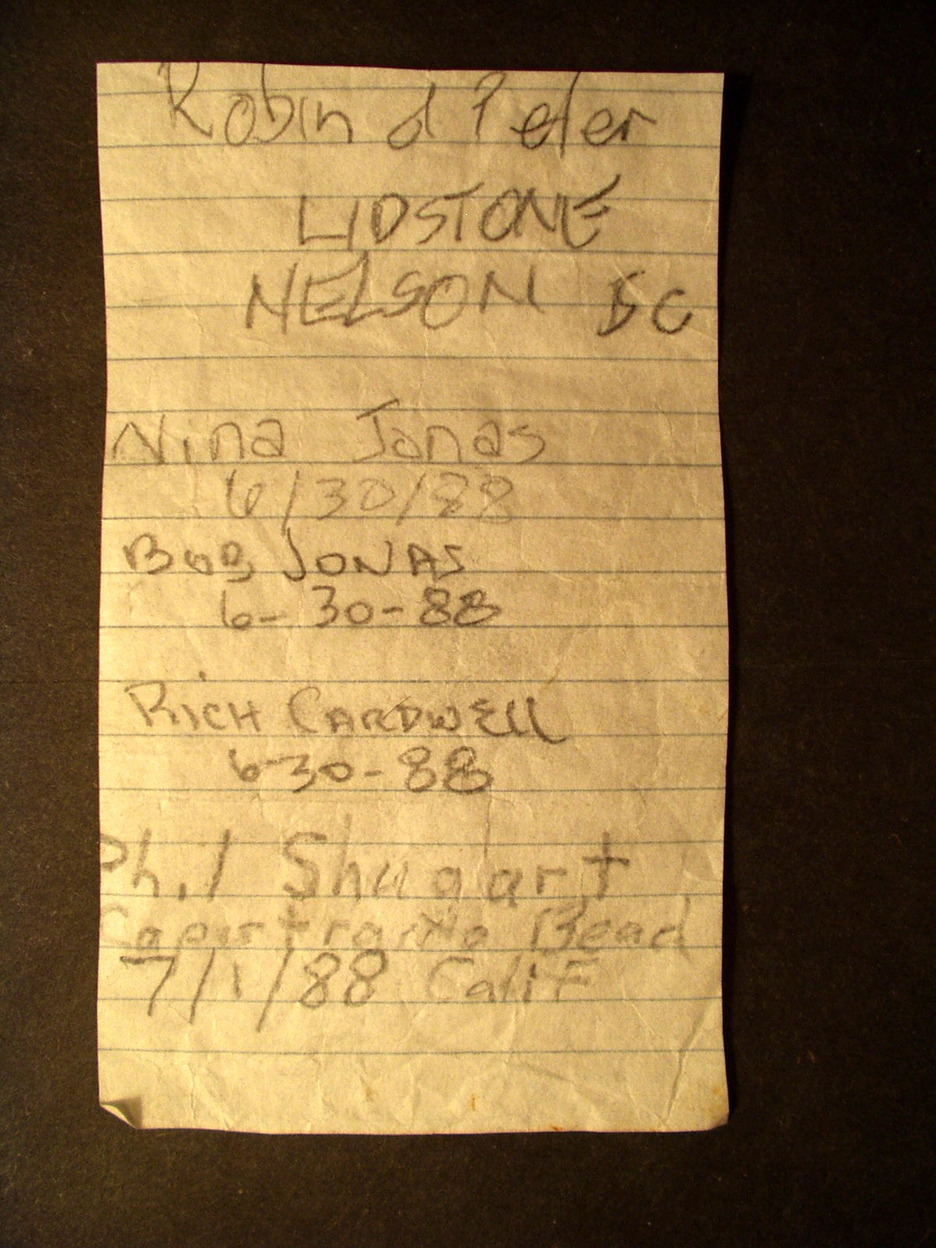 Robin & Peter
LIDSTONE
NELSON BC
Nina Jonas
6/30/88
BOB JONAS
6-30-88
RICH CARDWELL
6-30-88
Phil Shugart
Capistrano Bead
7/1/88 Calif